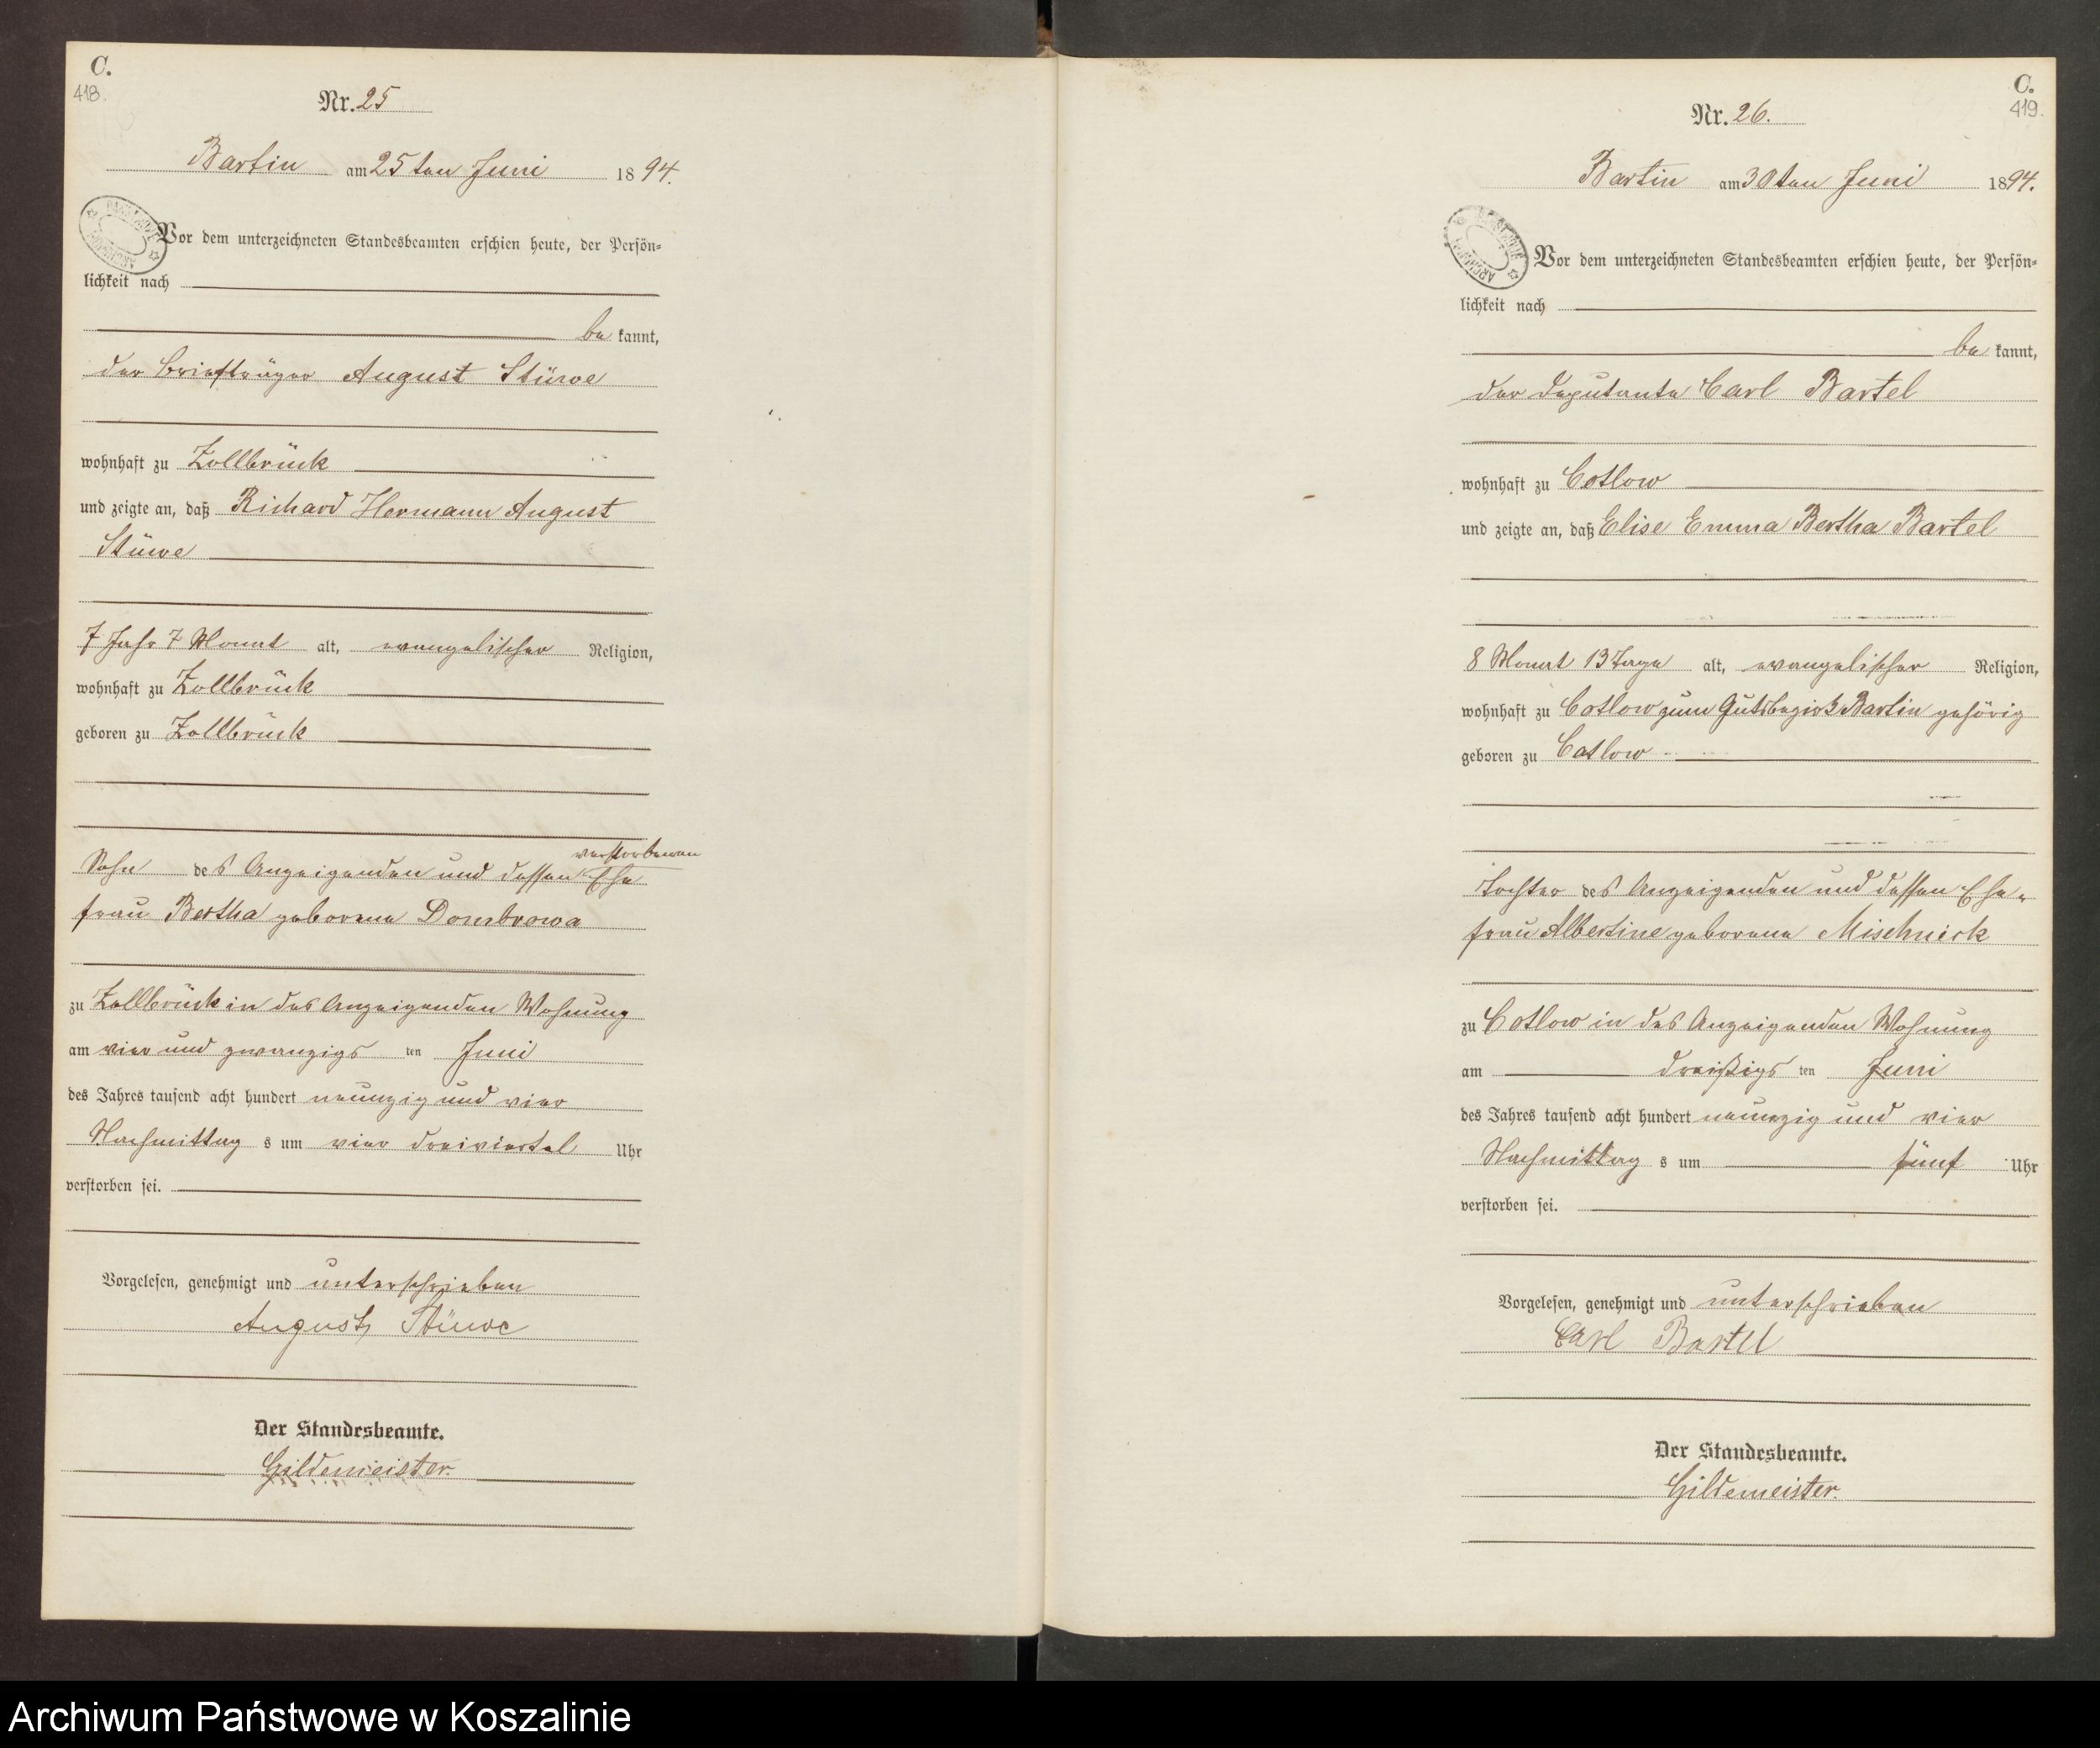 C.
418.
Nr. 25
Bartin am 25ten Juni 1894.
Vor dem unterzeichneten Standesbeamten erschien heute, der Persön=
lichkeit nach
be kannt,
der Briefträger August Stüwe
wohnhaft zu Zollbrück
und zeigte an, daß Richard Hermann August
Stüwe
7 Jahr 7 Monat alt, evangelischer Religion,
wohnhaft zu Zollbrück
geboren zu Zollbrück
verstorbenen
Sohn des Anzeigenden und dessen Ehe
frau Bertha geborene Dombrowa
zu Zollbrück in des Anzeigenden Wohnung
am vier und zwanzigs ten Juni
des Jahres tausend acht hundert neunzig und vier
Nachmittag s um vier dreiviertel Uhr
verstorben sei.
Vorgelesen, genehmigt und unterschrieben
August Stüwe
Der Standesbeamte.
Gildemeister.
C.
419.
Nr. 26.
Bartin am 30ten Juni 1894.
Vor dem unterzeichneten Standesbeamten erschien heute, der Persön=
lichkeit nach
be kannt,
der Deputante Carl Bartel
wohnhaft zu Cotlow
und zeigte an, daß Elise Emma Bertha Bartel
8 Monat 13 Tage alt, evangelischer Religion,
wohnhaft zu Cotlow zum Gutsbezirk Bartin gehörig
geboren zu Cotlow
Tochter des Anzeigenden und dessen Ehe=
frau Albertine geborene Mischnick
zu Cotlow in des Anzeigenden Wohnung
am dreißigs ten Juni
des Jahres tausend acht hundert neunzig und vier
Nachmittag s um fünf Uhr
verstorben sei.
Vorgelesen, genehmigt und unterschrieben
Carl Bartel
Der Standesbeamte.
Gildemeister.
Archiwum Państwowe w Koszalinie